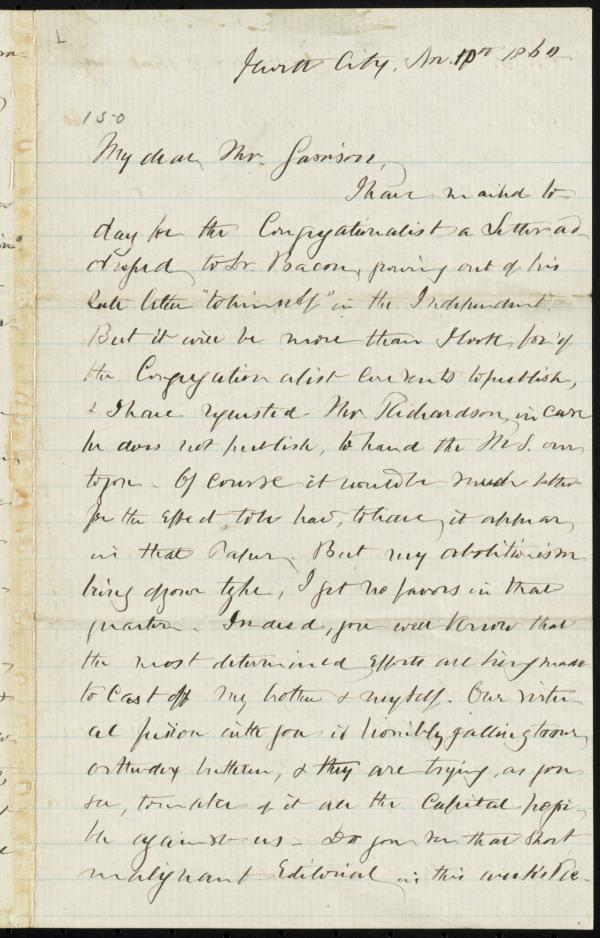 1
Jewett City, Nov. 10th 1860
150
My dear Mr. Garrison,
I have mailed to
day for the Congregationalist a Letter ad-
dressed to Dr. Bacon, growing out of his
late letter "to himself" in the Independent.
But it will be more than I look for if
the Congregationalist consents to publish,
& I have requested Mr. Richardson, in case
he does not publish, to hand the M.S. over
to you. Of course it would be much better
for the effect to be had, to have it appear
in that Paper. But my abolitionism
being of your type, I get no favors in that
quarter. Indeed, you well know that
the most determined efforts are being made
to cast off my brother & myself. Our virtu-
al fusion with you is horribly galling to our
orthodox brethren, & they are trying, as you
see, to make of it all the capital possi-
ble against us - Do you see that short
malignant Editorial in this week's